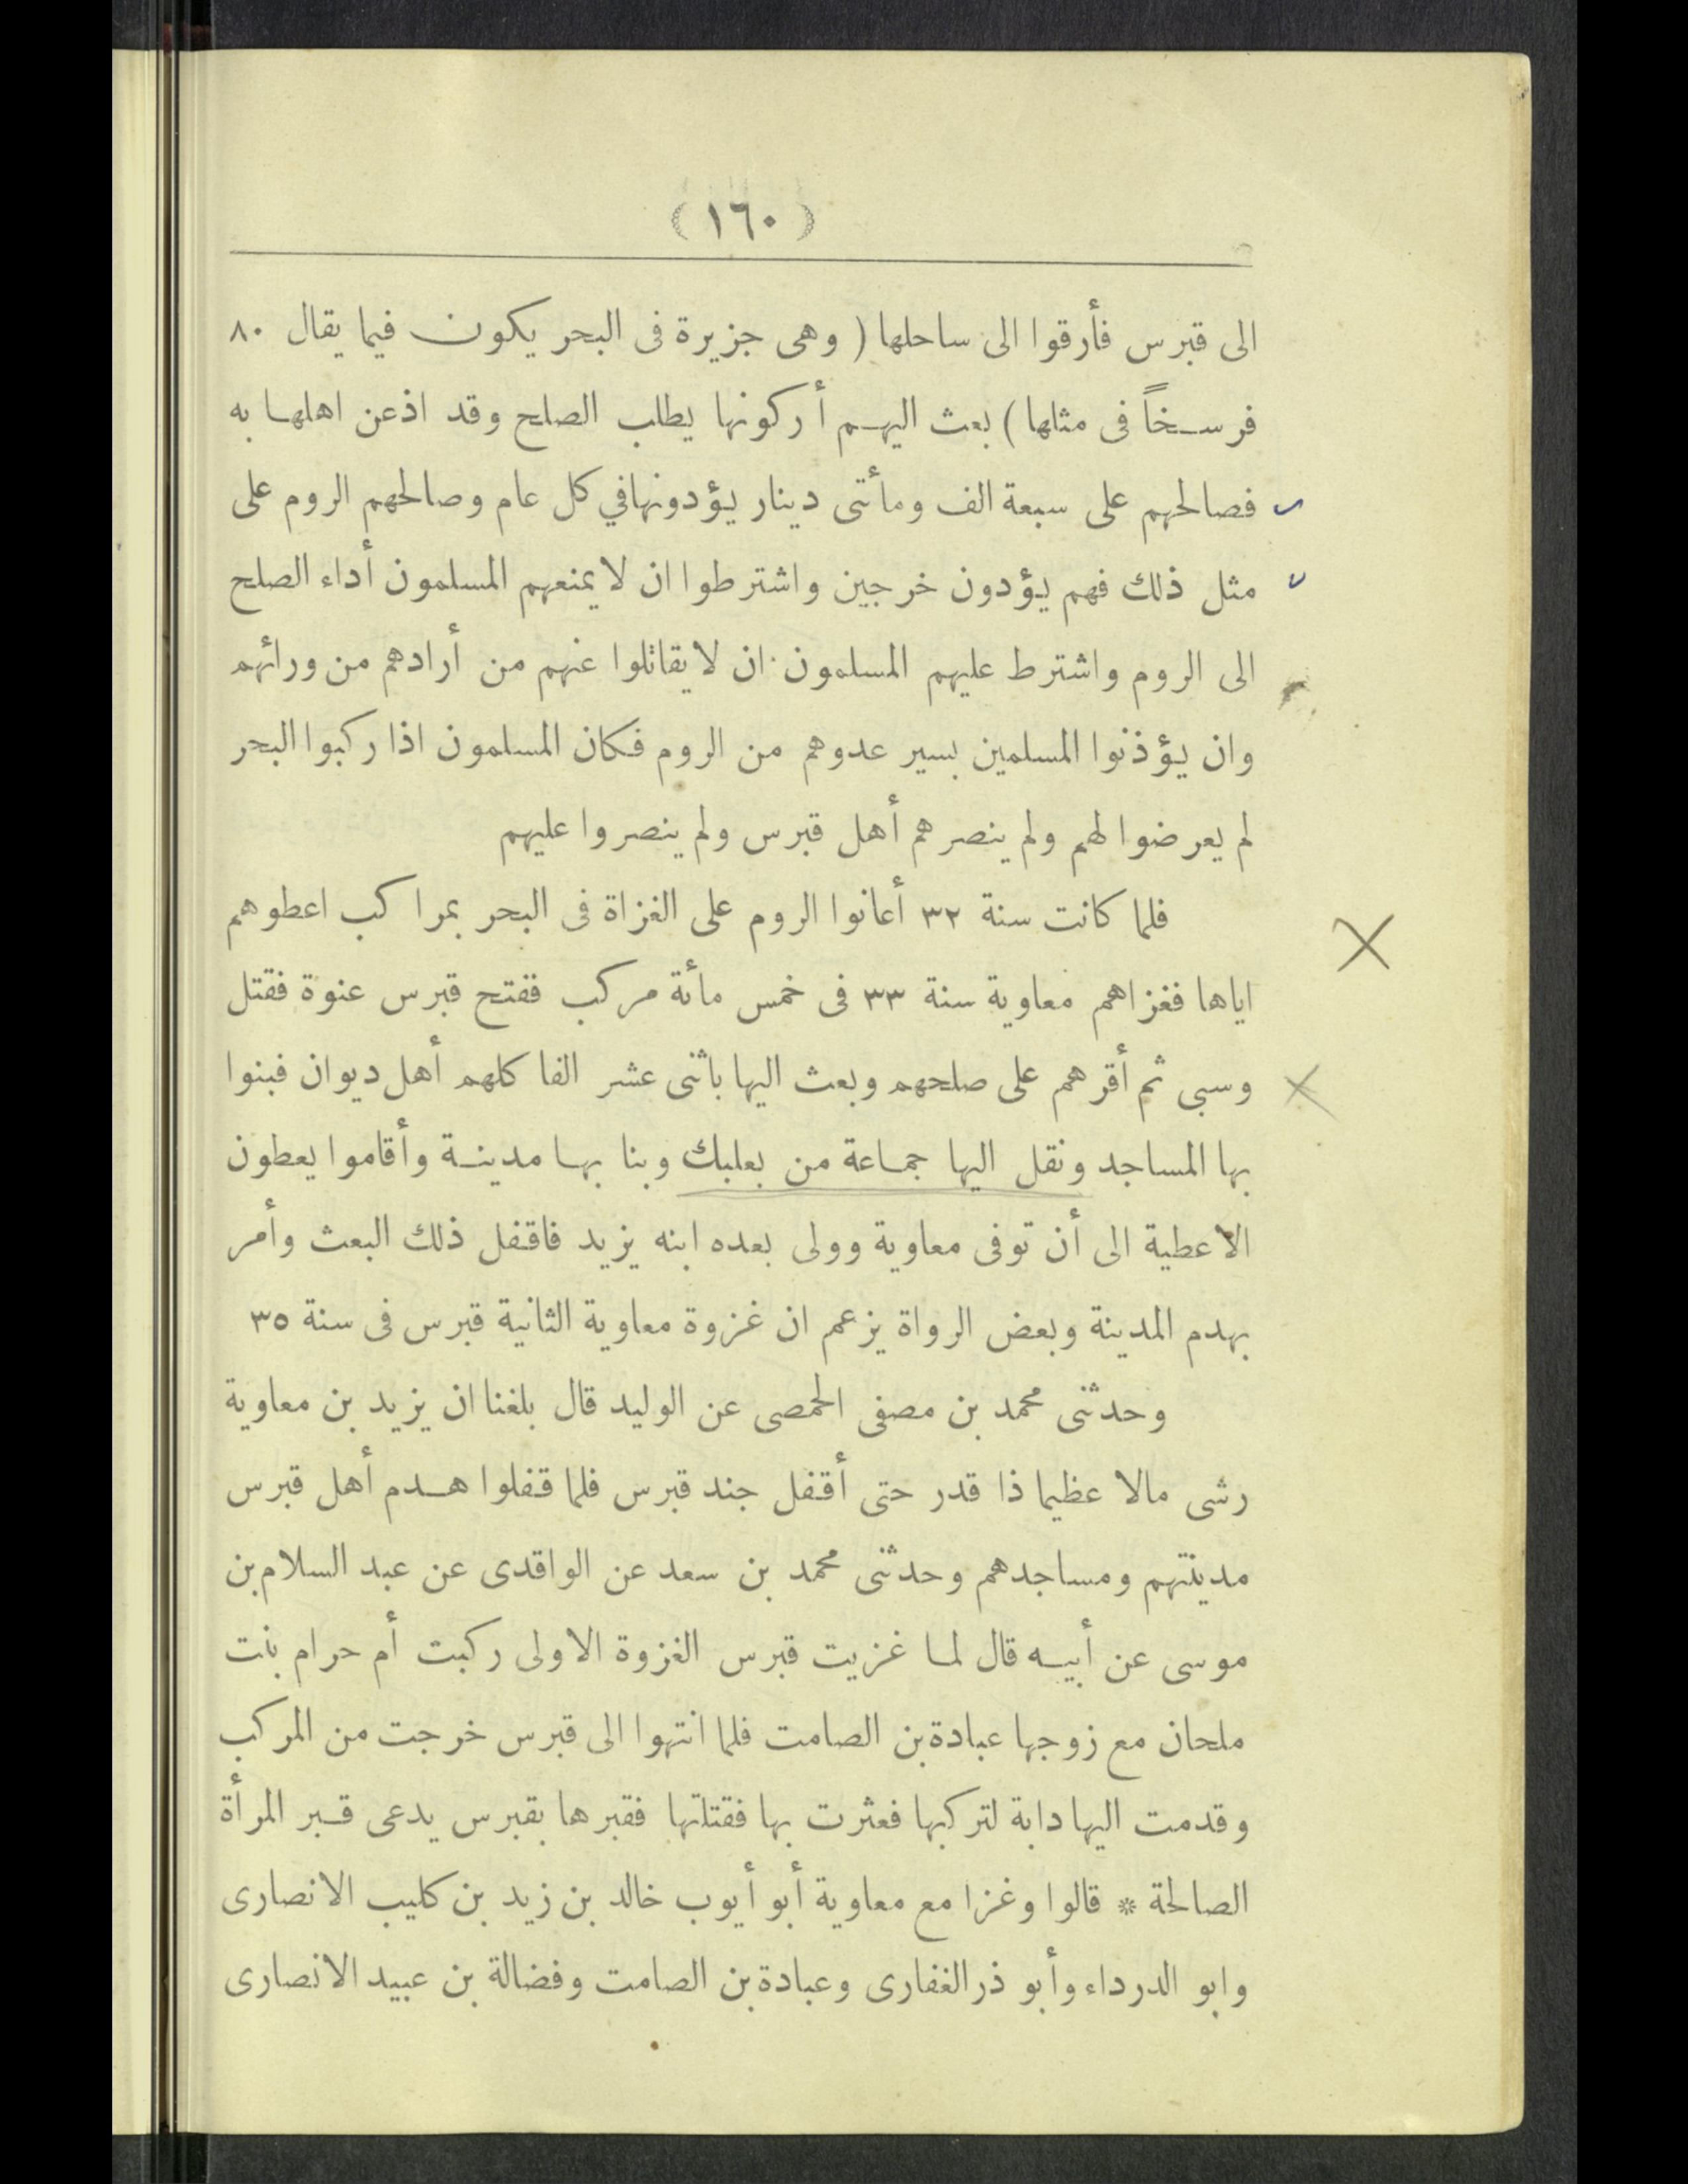 (١٦٠)
الى قبرس فأرقوا الى ساحلها ( وهى جزيرة فى البحر يكون فيما يقال ٨٠
فرسخاً فى مثلها ) بعث اليهم أركونها يطلب الصلح وقد اذعن اهلها به
فصالحهم على سبعة الف ومأتى دينار يؤدونها في كل عام وصالحهم الروم على
مثل ذلك فهم يؤدون خرجين واشترطوا ان لا يمنعهم المسلمون أداء الصلح
الى الروم واشترط عليهم المسلمون ان لا يقاتلوا عنهم من أرادهم من ورائهم
وان يؤذنوا المسلمين بسير عدوهم من الروم فكان المسلمون اذا ركبوا البحر
لم يعرضوا لهم ولم ينصرهم أهل قبرس ولم ينصروا عليهم
فلما كانت سنة ٣٢ أعانوا الروم على الغزاة فى البحر بمراكب اعطوهم
اياها فغزاهم معاوية سنة ٣٣ فى خمس مائة مركب ففتح قبرس عنوة فقتل
وسبى ثم أقرهم على صلحهم وبعث اليها باثنى عشر الفا كلهم أهل ديوان فبنوا
بها المساجد ونقل اليها جماعة من بعلبك وبنا بها مدينة وأقاموا يعطون
الاعطية الى أن توفى معاوية وولى بعده ابنه يزيد فاقفل ذلك البعث وأمر
بهدم المدينة وبعض الرواة يزعم ان غزوة معاوية الثانية قبرس فى سنة ٣٥
وحدثنى محمد بن مصفى الحمصى عن الوليد قال بلغنا ان يزيد بن معاوية
رشى مالا عظيما ذا قدر حتى أقفل جند قبرس فلما قفلوا هدم أهل قبرس
مدينتهم ومساجدهم وحدثنى محمد بن سعد عن الواقدى عن عبد السلام بن
موسى عن أبيه قال لما غزيت قبرس الغزوة الاولى ركبت أم حرام بنت
ملحان مع زوجها عبادة بن الصامت فلما انتهوا الى قبرس خرجت من المركب
وقدمت اليها دابة لتركبها فعثرت بها فقتلتها فقبرها بقبرس يدعى قبر المرأة
الصالحة * قالوا وغزا مع معاوية أبو أيوب خالد بن زيد بن كليب الانصارى
وابو الدرداء وأبو ذر الغفارى وعبادة بن الصامت وفضالة بن عبيد الانصارى